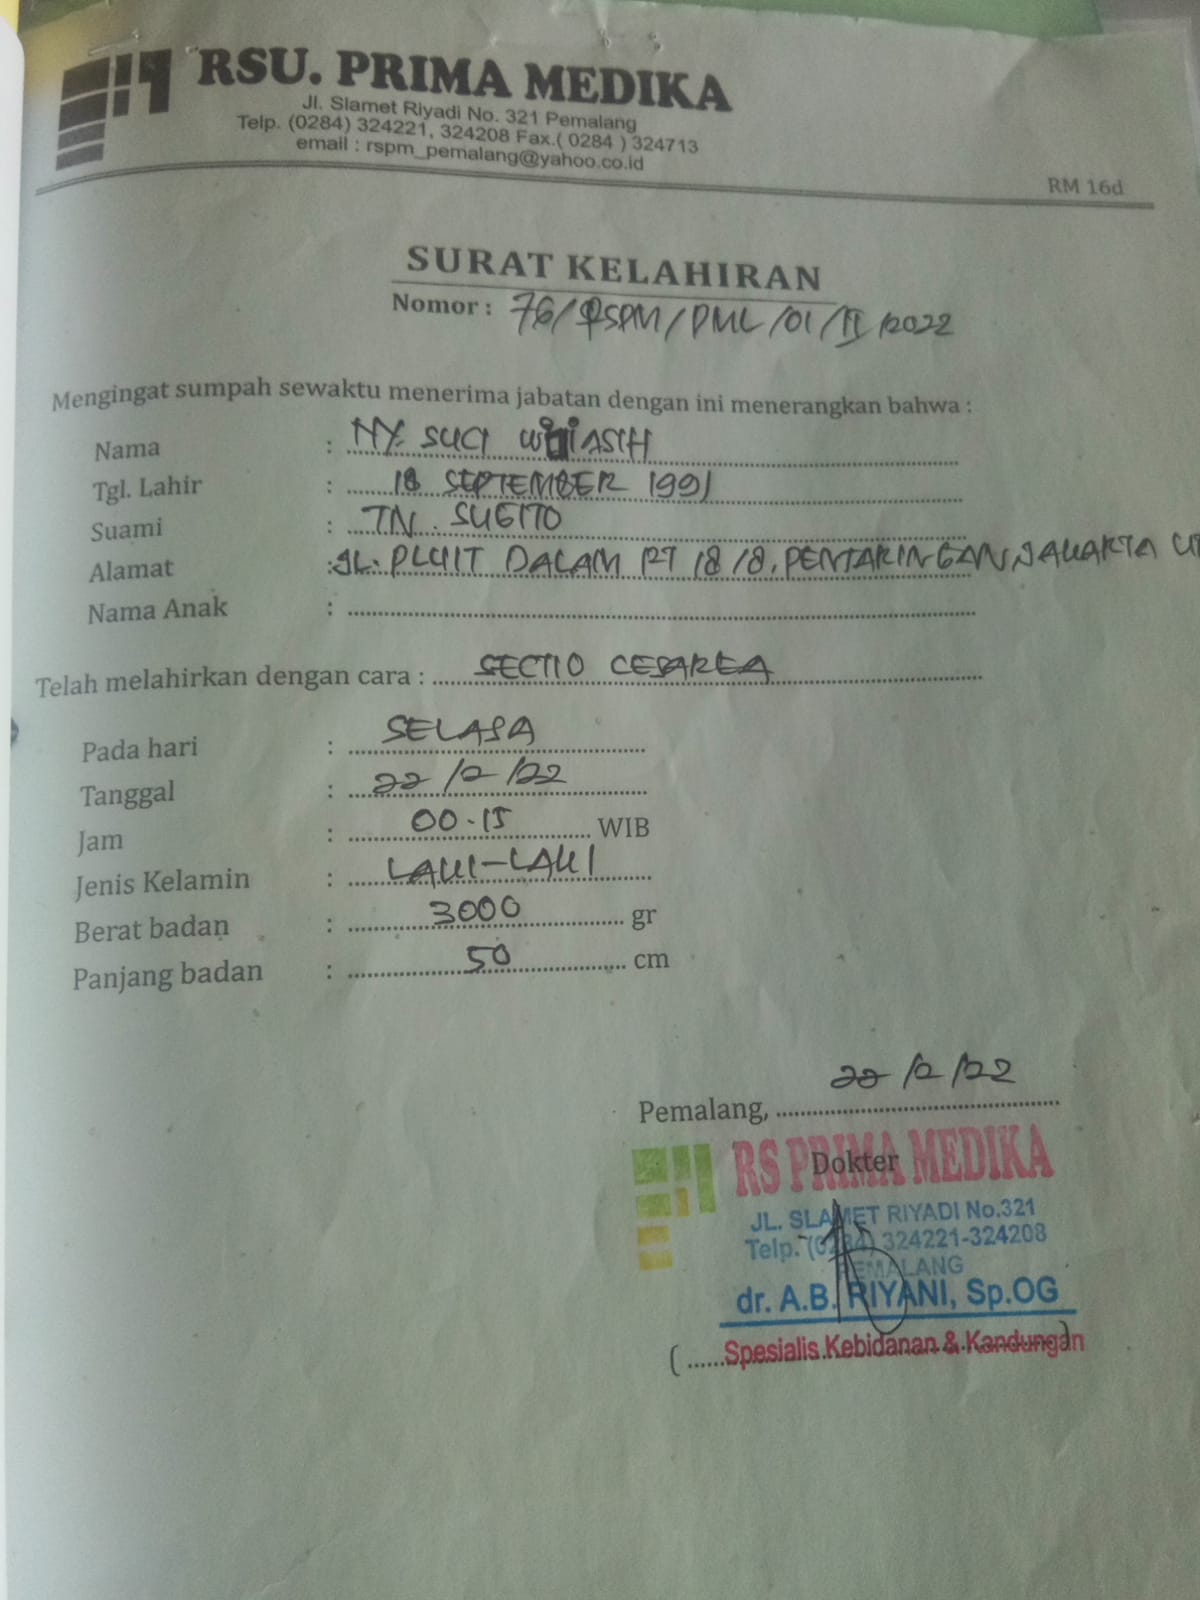 RSU. PRIMA MEDIKA
Jl. Slamet Riyadi No. 321 Pemalang
Telp. (0284) 324221, 324208 Fax.( 0284 ) 324713
email : rspm_pemalang@yahoo.co.id
RM 16d
SURAT KELAHIRAN
Nomor : 76/RSPM/PML/01/II/2022
Mengingat sumpah sewaktu menerima jabatan dengan ini menerangkan bahwa :
Nama : NY. SUCI
Tgl. Lahir : 18 SEPTEMBER 1991
Suami : TN. SUGITO
Alamat : JL. PLUIT DALAM RT 18/8, PENJARINGAN, JAKARTA
Nama Anak :
Telah melahirkan dengan cara : SECTIO CESAREA
Pada hari : SELASA
Tanggal : 22/2/22
Jam : 00.15 WIB
Jenis Kelamin : LAKI-LAKI
Berat badan : 3000 gr
Panjang badan : 50 cm
Pemalang, 22/2/22
RS PRIMA MEDIKA
Dokter
JL. SLAMET RIYADI No.321
Telp. (0284) 324221-324208
PEMALANG
dr. A.B. RIYANI, Sp.OG
(......Spesialis Kebidanan & Kandungan)